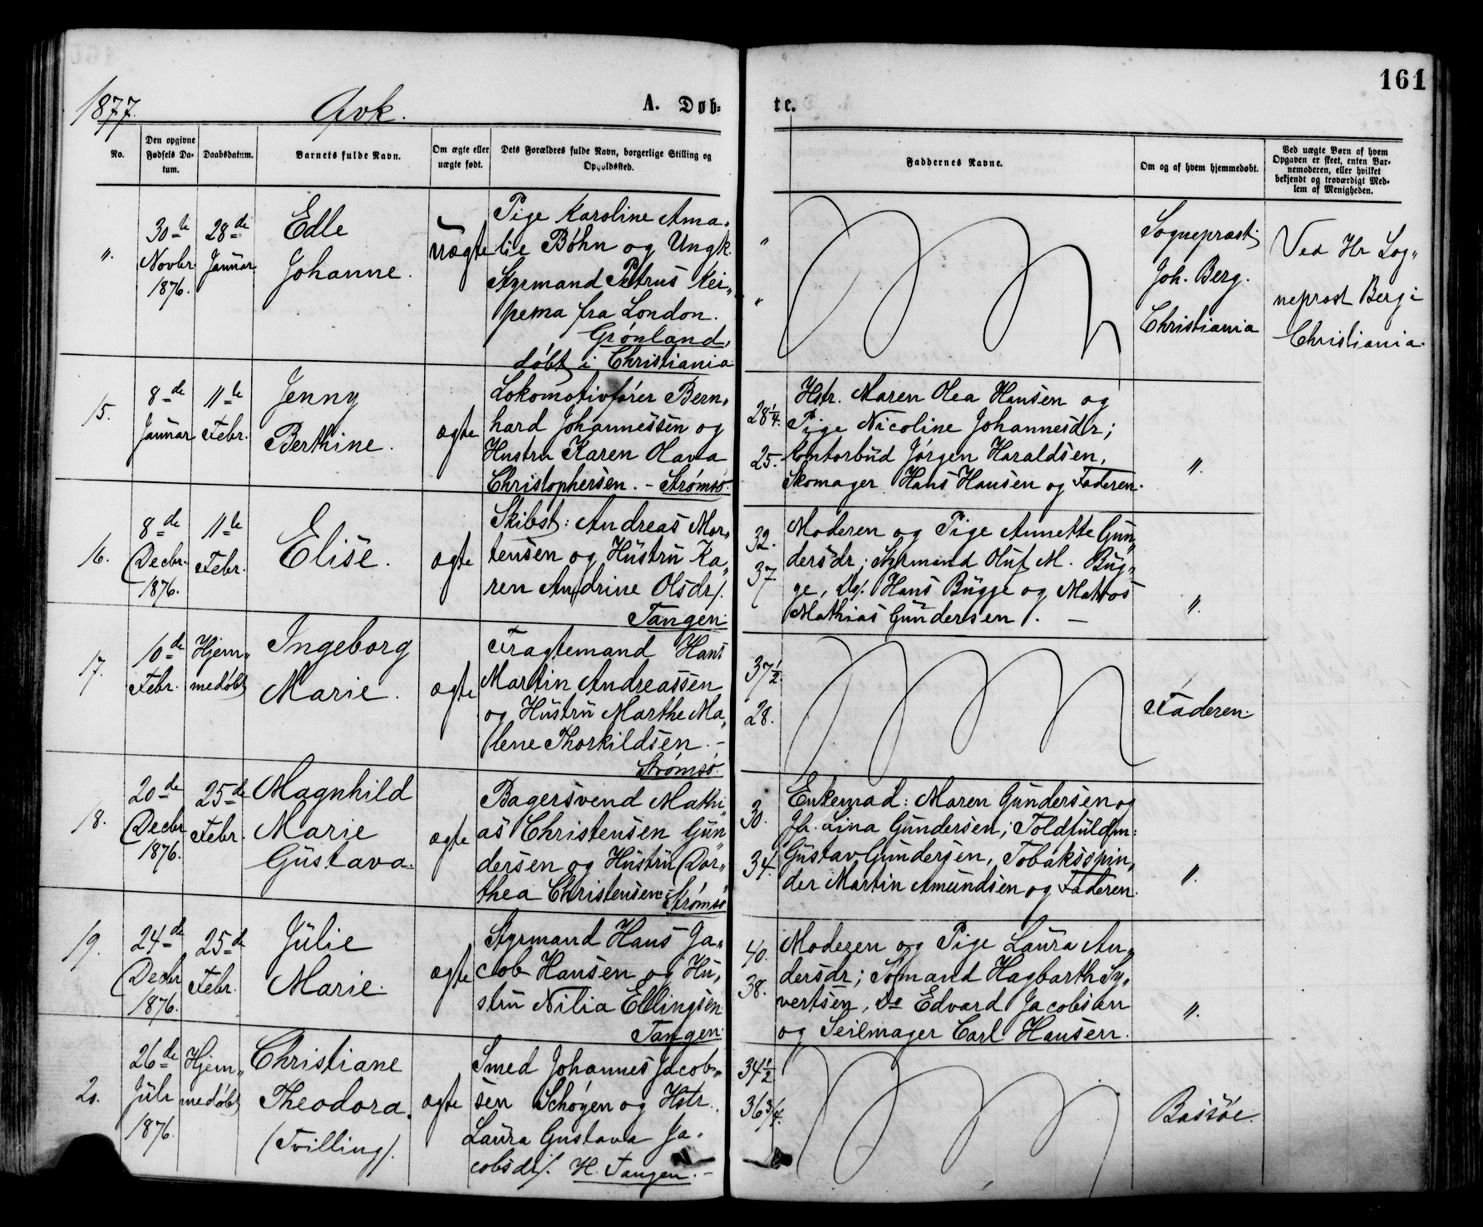 161
1877.
Qvk.
A. Døb=
te.
No.
Den opgivne
Fødsels Da-
tum.
Daabsdatum.
Barnets fulde Navn.
Om ægte eller
uægte født.
Dets Forældres fulde Navn, borgerlige Stilling og
Opholdssted.
Faddernes Navne.
Om og af hvem hjemmedøbt.
Ved uægte Børn af hvem
Opgaven er skeet, enten Bar-
nemoderen, eller hvilket
bekjendt og troværdigt Med-
lem af Menigheden.
"
30te
Novbr
1876.
28de
Januar
Edle
Johanne.
uægte
Pige Karoline Ama-
lie Bøhn og Ungk.
Styrmand Petrus Kei-
pema fra London.
Grønland,
døbt i Christiania
"
"
Sogneprest
Joh. Berg.
Christiania
Ved Hr Sog-
neprest Berg i
Christiania.
15.
8de
Januar
11te
Febr.
Jenny
Berthine.
ægte
Lokomotivfører Bern-
hard Johannessen og
Hustru Karen Olava
Christophersen. - Strømsø.
28¼.
25.
Hstr. Maren Olea Hansen og
Pige Nicoline Johannesdr;
Contorbud Jörgen Haraldsen,
Skomager Hans Hansen og Faderen.
"
16.
8de
Decbr.
1876.
11te
Febr.
Elise.
ægte
Skibst: Andreas Mor-
tensen og Hustru Ka-
ren Andrine Olsdr/.
Tangen.
32.
37.
Moderen og Pige Annette Gun-
dersdr; Styrmand Oluf M. Bug-
ge, Do. Hans Bugge og Matros
Mathias Gundersen /. —
"
17.
10de
Febr.
Hjem-
medøbt
Ingeborg
Marie.
ægte
Fragtemand Hans
Martin Andreassen
og Hustru Marthe Ma-
lene Thorkildsen. -
Strømsø.
37½
28.
Faderen.
18.
20de
Decbr
1876.
25de
Febr.
Magnhild
Marie
Gustava.
ægte
Bagersvend Mathi-
as Christensen Gun-
dersen og Hustru Dor-
thea Christensen. Strømsø
30.
34.
Enkemad: Maren Gundersen og
Jfr. Lina Gundersen; Toldfuldm:
Gustav Gundersen, Tobaksspin-
der Martin Amundsen og Faderen.
"
19.
24de
Decbr
1876.
25de
Febr.
Julie
Marie.
ægte
Styrmand Hans Ja-
cob Hansen og Hu-
stru Nilia Ellingsen
Tangen.
40.
38.
Moderen og Pige Laura An-
dersdr; Sømand Hagbarth Sy-
vertsen, Do Edvard Jacobsen
og Seilmager Carl Hansen.
"
20.
26de
Juli
1876.
Hjem-
medøbt
Christiane
Theodora.
(Tvilling/.
ægte
Smed Johannes Jacob-
sen Schøyen og Hstr.
Laura Gustava Ja-
cobsdr/. H. Tangen. -
34½
36¾.
Bassøe.